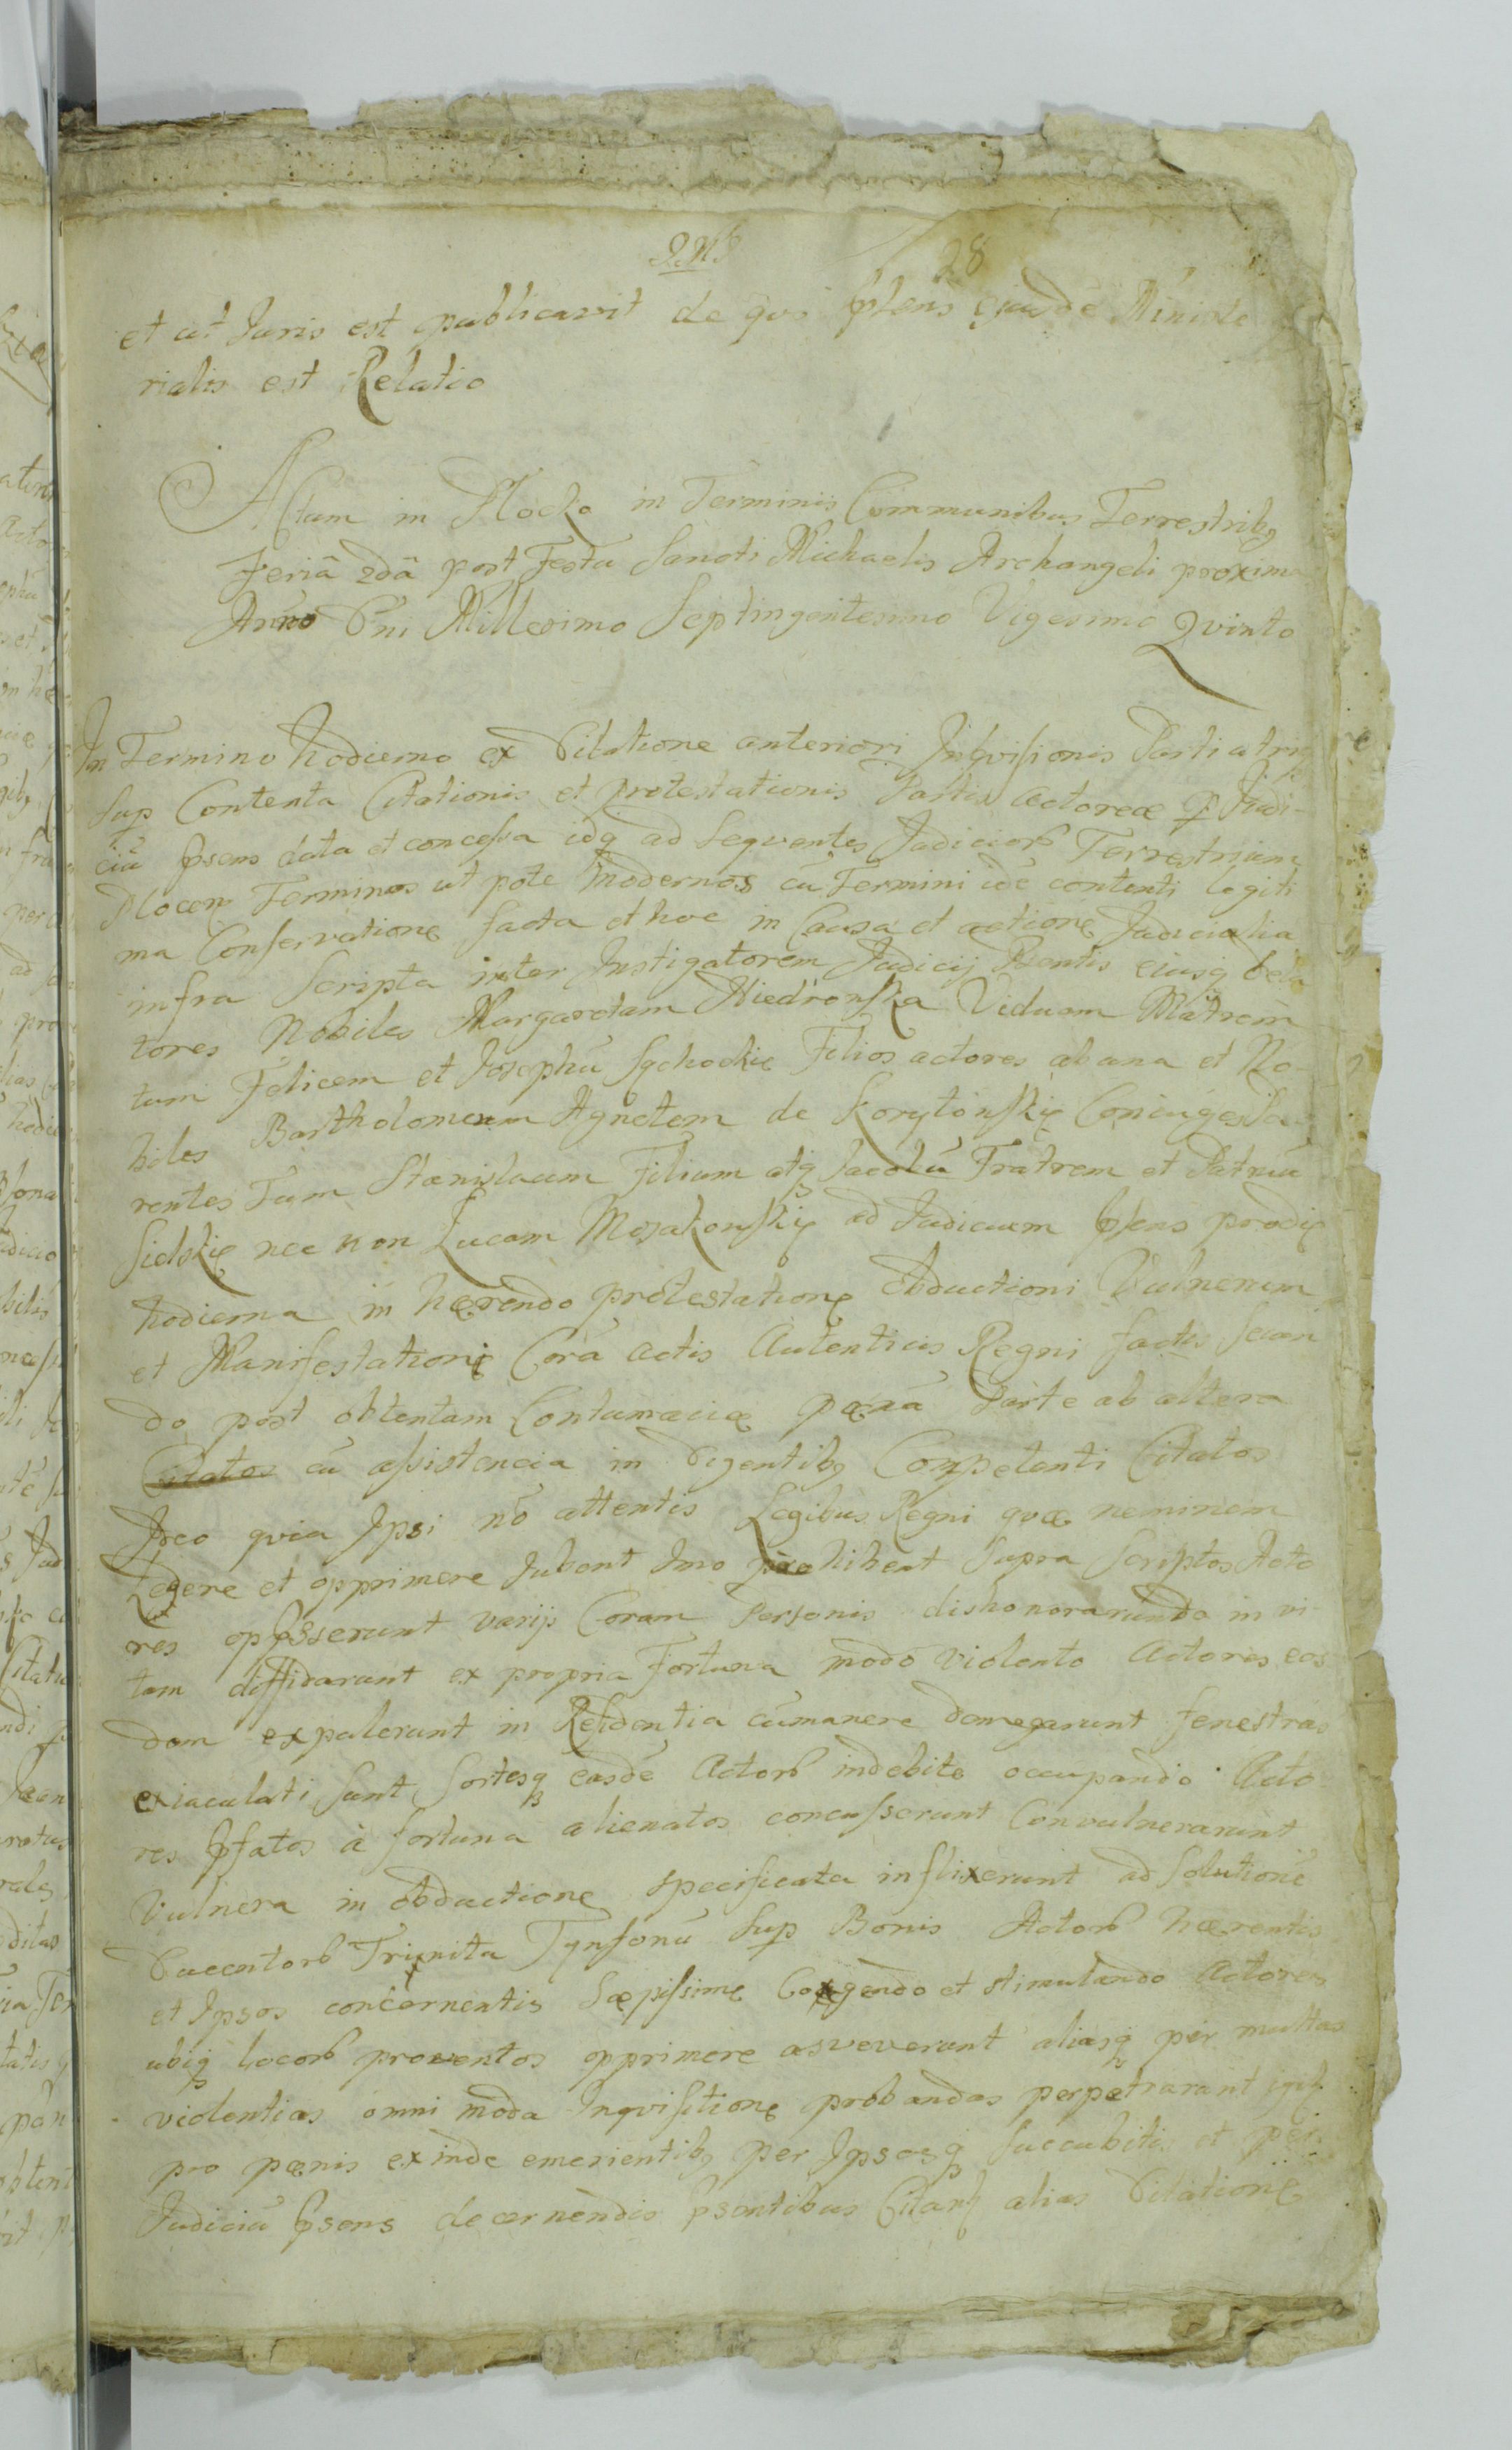 28
et ut Juris est publicavit de quo Pſens ejusdē Ministe
rialis est Relatio
Actum in Płocko in Terminis Communibus Terrestribꝫ
Feriâ 2dâ post Festa Sancti Michaelis Archangeli proxima
Anno Dni Millesimo Septingentesimo Vigesimo Qvinto
In Termino hodierno ex Dilatione anteriori Inqvisionis Parti utriq
Sup Contenta Citationis et protestationis Partis actoreæ P Judi-
ciū Psens data et concessa idq ad seqventes Judicior Terrestrium
Plocen Terminos ut pote modernos cū Termini idē contenti legiti
ma Conservatione facta et hoc in Causa et actione Judicialia
infra Scripta inter Instigatorem Judicij Psentis eiusq dela
tores Nobiles Margaretam Niedronska Viduam Matrem
tum Felicem et Josephū Sychockie Filios actores ab una et No-
biles Bartholomeum Agnetem de Korytonskie Coniuges Pa-
rentes Tum Stanislaum Filium atq Jacobū Fratrem et Patruū
Sielskie nec non Lucam Mosakonskie ad Judicium Psens prodie
hodierna in hærendo protestatione Obductioni Vulnerum
et Manifestatione Corā actis Autenticis Regni factis secun
do post obtentam Contumaciæ pænā Parte ab altera
Citatos cū assistencia in Digentibꝫ Competenti Citatos
Ideo qvia Ipsi nō attentis Legibus Regni quæ neminem
Ledere et opprimere Jubent Imo prohibent Supra Scriptos Acto
res oppsserunt varijs Coram Personis dishonorarunda in vi-
tam diffidarunt ex propria Fortuna modo violento Actores eos
dem expulerunt in Residentia cūmanere denegarunt fenestras
exiaculati sunt Sortesq easdē Actor indebite occupando Acto
res Pfatos à fortuna alienatos concusserunt Convulnerarunt
Vulnera in obductione specificata inflixerunt ad Solutionē
Ducentor Triginta Tynfonū Sup Bonis Actor hærentis
et Ipsos concernentis Sæpissime Cogendo et stimulando Actores
ubiq locor proventos opprimere asveverunt aliasq per multas
violentias omni moda Inqvisitione probandas perpetrarunt
pro pænis exinde emerientibꝫ per Ipsosq succubitis et per
Judiciū Psens decernendis Psentibus Citant alias Dilatione